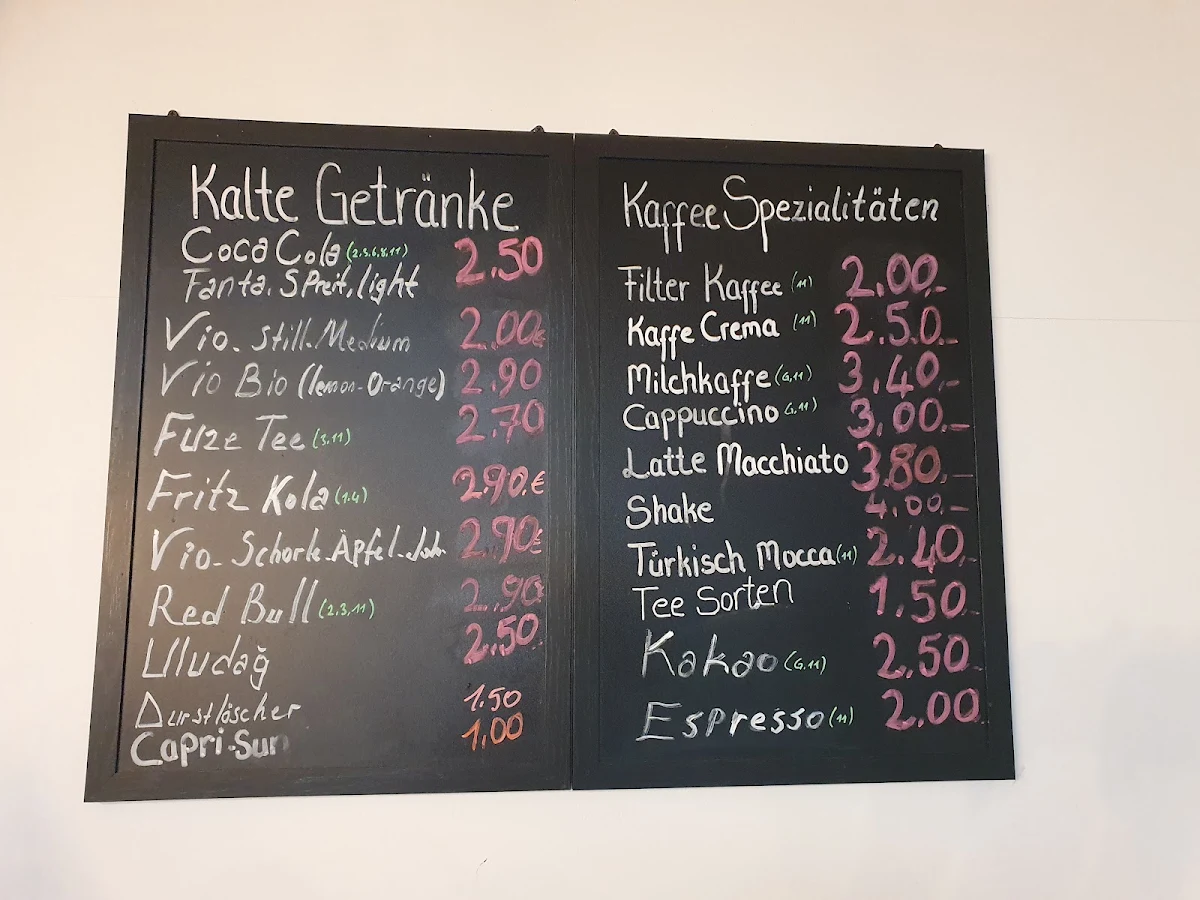 Kalte Getränke
Coca Cola (2.3.6.8.11) 2.50
Fanta. SPreit, light
Vio. Still-Medium 2.00€
Vio Bio (lemon-Orange) 2.90
Fuze Tee (3.11) 2.70
Fritz Kola (1.4) 2.90.€
Vio. Schorle Äpfel- 2.90€
Red Bull (2.3.11) 2.90
Uludağ 2.50.
Durstlöscher 1.50
Capri-Sun 1.00
Kaffee Spezialitäten
Filter Kaffee (11) 2.00.-
Kaffe Crema (11) 2.50.-
Milchkaffe (G,11) 3.40.-
Cappuccino G,11) 3.00.-
Latte Macchiato 3.80.-
Shake 4.00.-
Türkisch Mocca (11) 2.40.-
Tee Sorten 1.50
Kakao (G.11) 2.50
Espresso (11) 2.00